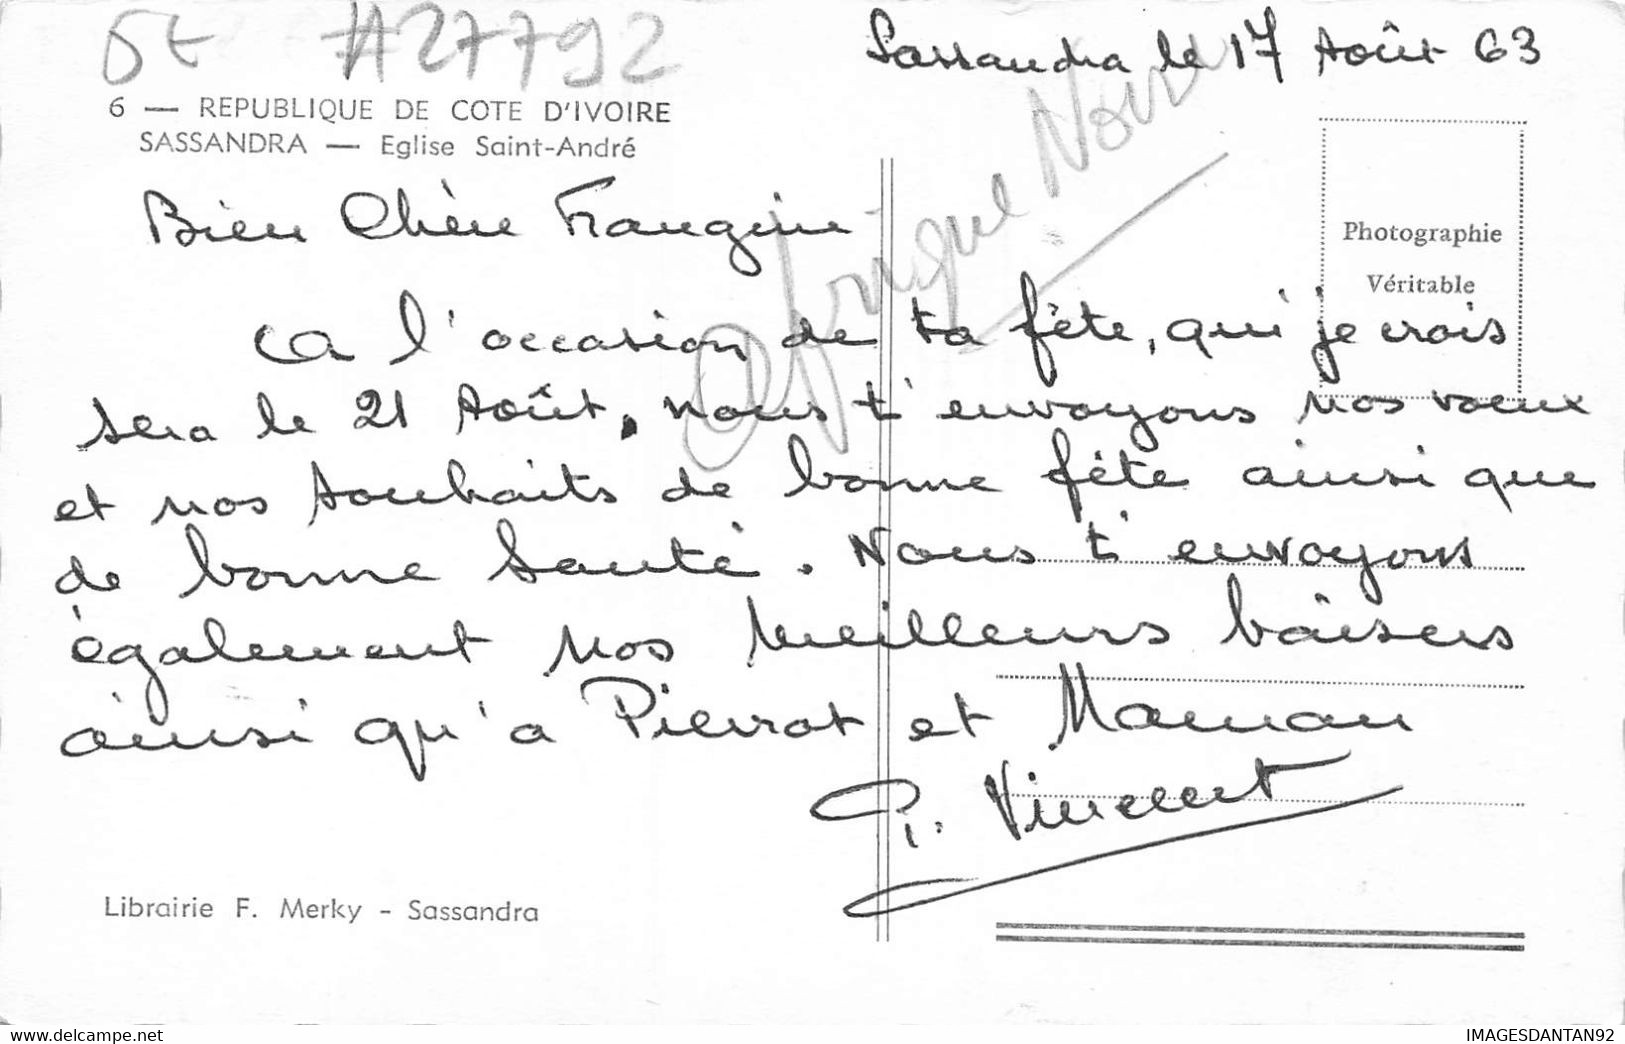 5t #27792
Sassandra le 17 Août 63
6 — REPUBLIQUE DE COTE D'IVOIRE
SASSANDRA — Eglise Saint-André
Afrique Noire
Photographie
Véritable
Bien Chère Frangine
A l'occasion de ta fête, qui je crois
sera le 21 Août, nous t'envoyons nos voeux
et nos souhaits de bonne fête ainsi que
de bonne Santé. Nous t'envoyons
également nos meilleurs baisers
ainsi qu'a Pierrot et Maman
P. Vincent
Librairie F. Merky - Sassandra
https://www.delcampe.net
IMAGESDANTAN92